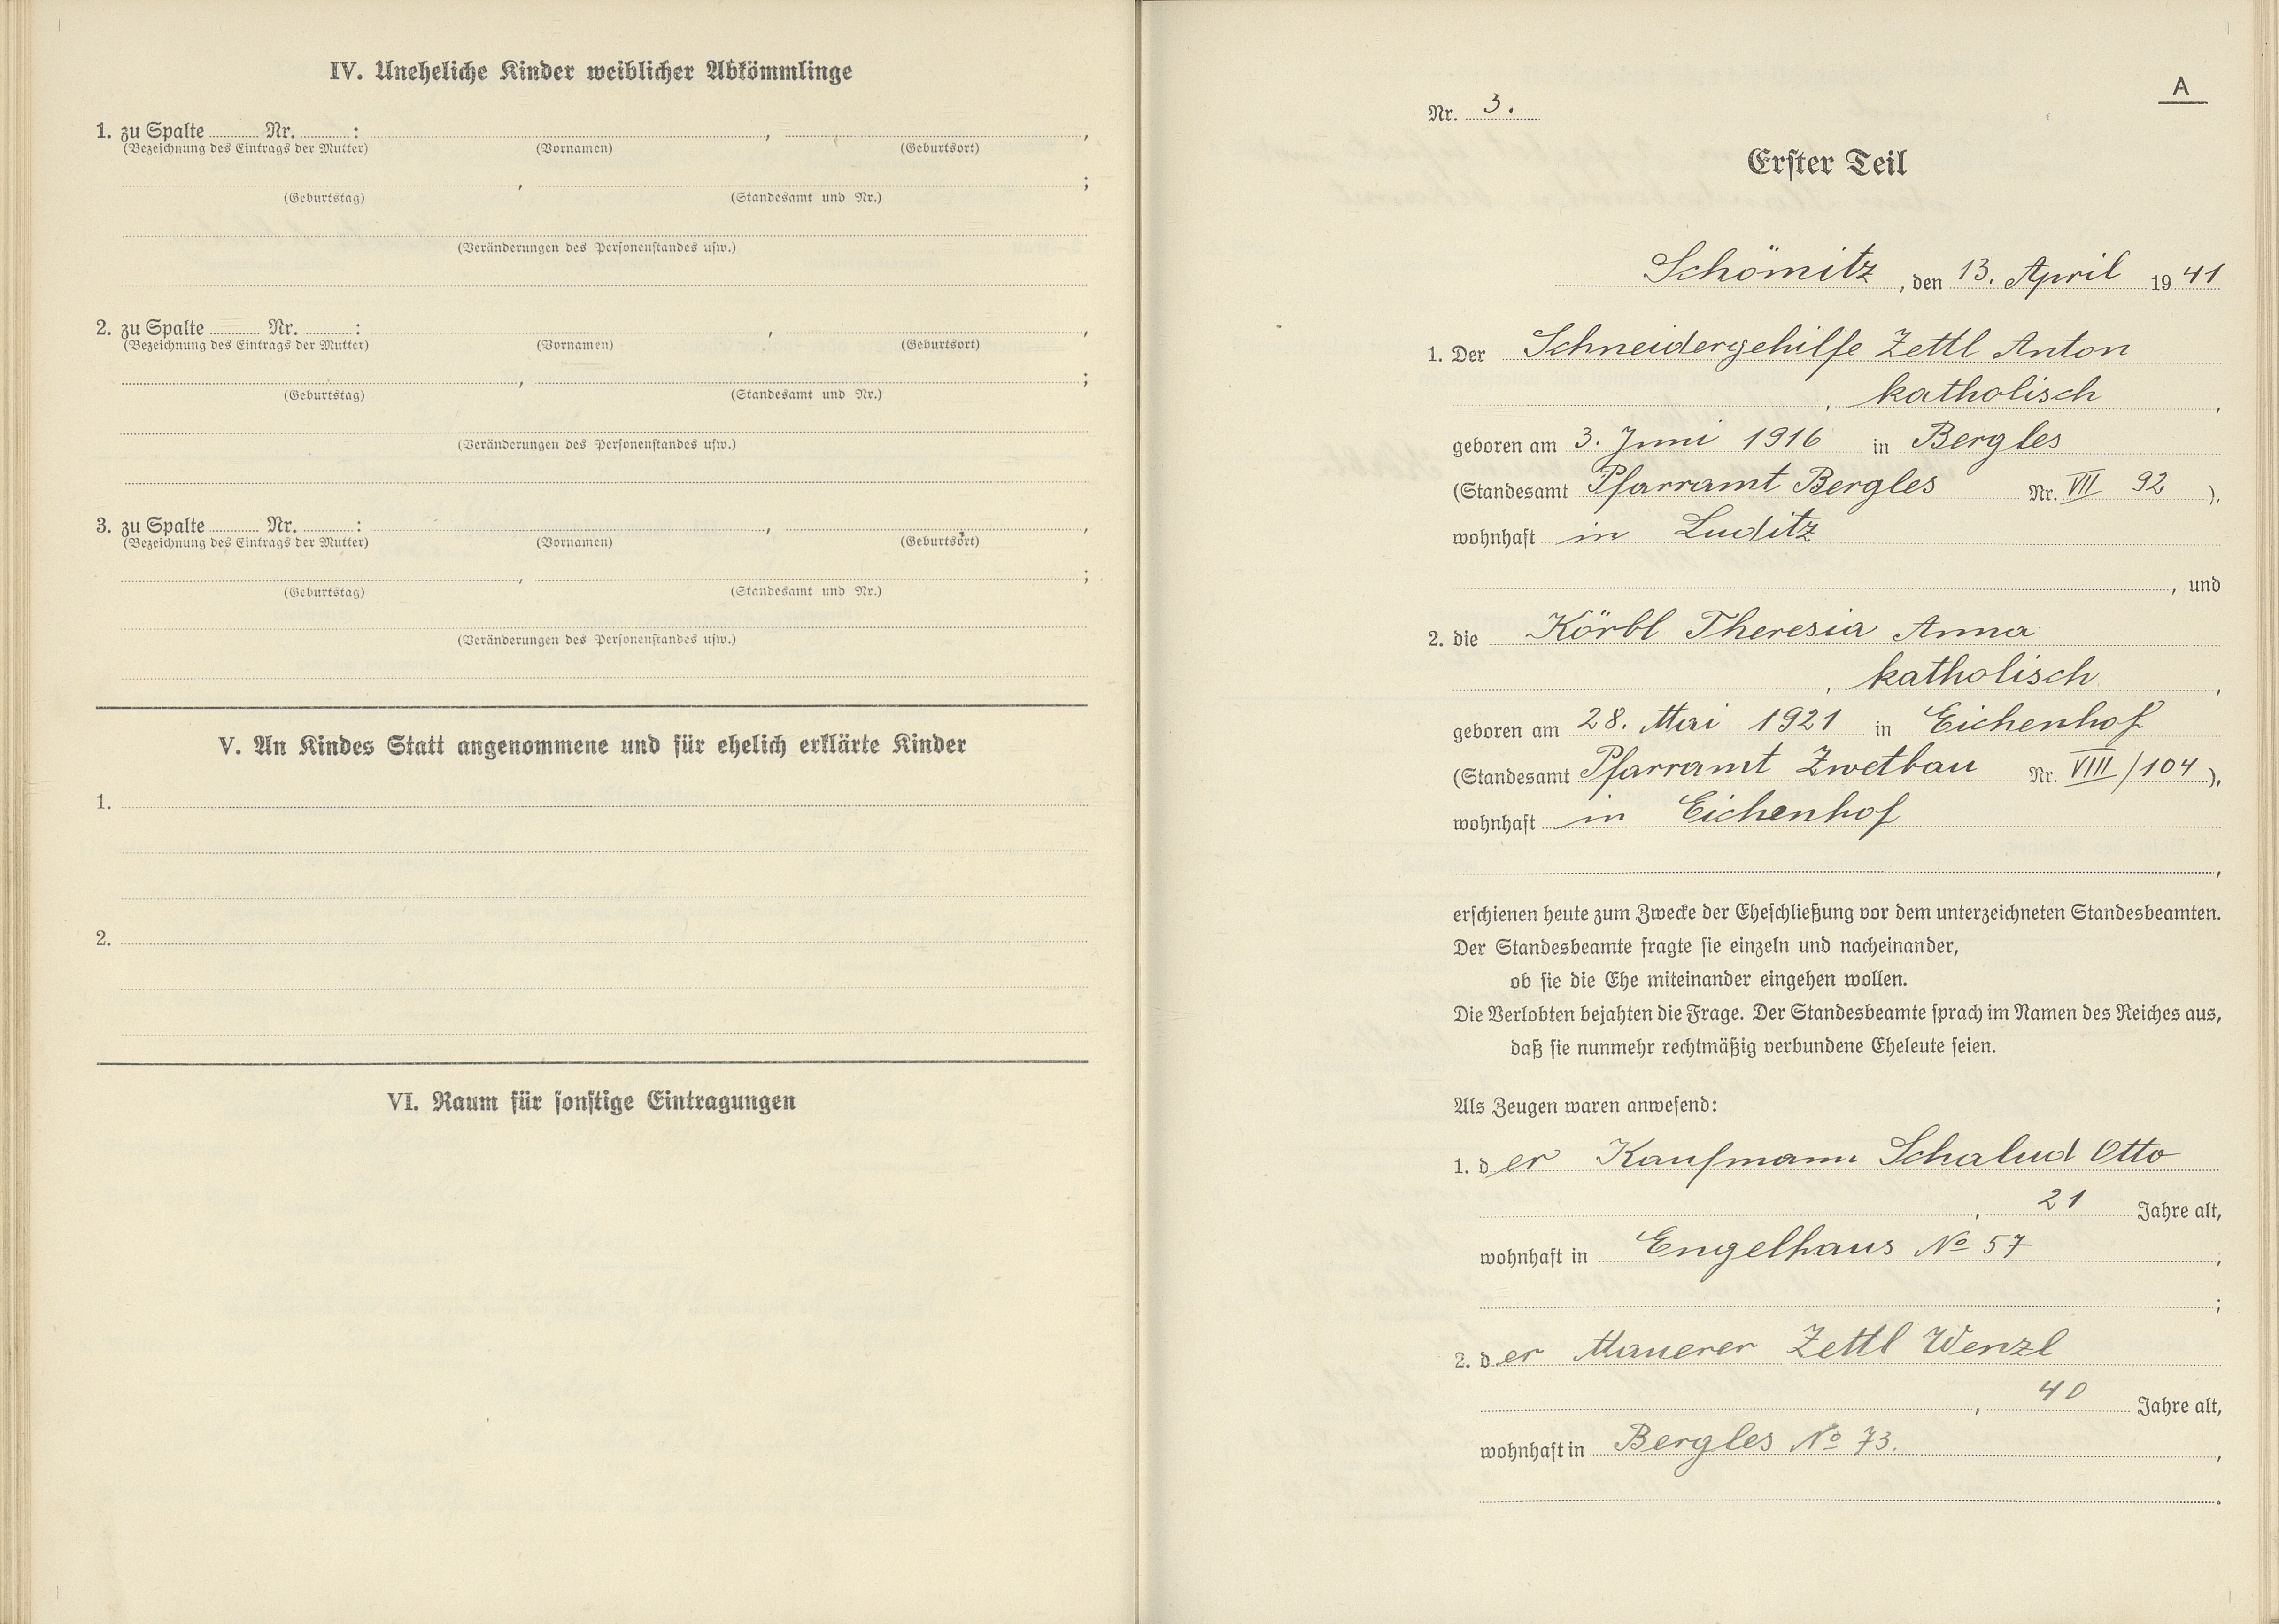 IV. Uneheliche Kinder weiblicher Abkömmlinge
1. zu Spalte ........ Nr. ........ : , ,
(Bezeichnung des Eintrags der Mutter) (Vornamen) (Geburtsort)
, ;
(Geburtstag) (Standesamt und Nr.)
(Veränderungen des Personenstandes usw.)
2. zu Spalte ........ Nr. ........ : , ,
(Bezeichnung des Eintrags der Mutter) (Vornamen) (Geburtsort)
, ;
(Geburtstag) (Standesamt und Nr.)
(Veränderungen des Personenstandes usw.)
3. zu Spalte ........ Nr. ........ : , ,
(Bezeichnung des Eintrags der Mutter) (Vornamen) (Geburtsort)
, ;
(Geburtstag) (Standesamt und Nr.)
(Veränderungen des Personenstandes usw.)
V. An Kindes Statt angenommene und für ehelich erklärte Kinder
1.
2.
VI. Raum für sonstige Eintragungen
A
Nr. 3.
Erster Teil
Schömitz, den 13. April 1941
1. Der Schneidergehilfe Zettl Anton
, katholisch ,
geboren am 3. Juni 1916 in Bergles
(Standesamt Pfarramt Bergles Nr. VII 92 ),
wohnhaft in Luditz
, und
2. die Körbl Theresia Anna
, katholisch ,
geboren am 28. Mai 1921 in Eichenhof
(Standesamt Pfarramt Zwetbau Nr. VIII/104 ),
wohnhaft in Eichenhof
,
erschienen heute zum Zwecke der Eheschließung vor dem unterzeichneten Standesbeamten.
Der Standesbeamte fragte sie einzeln und nacheinander,
ob sie die Ehe miteinander eingehen wollen.
Die Verlobten bejahten die Frage. Der Standesbeamte sprach im Namen des Reiches aus,
daß sie nunmehr rechtmäßig verbundene Eheleute seien.
Als Zeugen waren anwesend:
1. der Kaufmann Schalud Otto
, 21 Jahre alt,
wohnhaft in Engelhaus No 57 ,
;
2. der Mauerer Zettl Wenzl
, 40 Jahre alt,
wohnhaft in Bergles No 73. ,
.